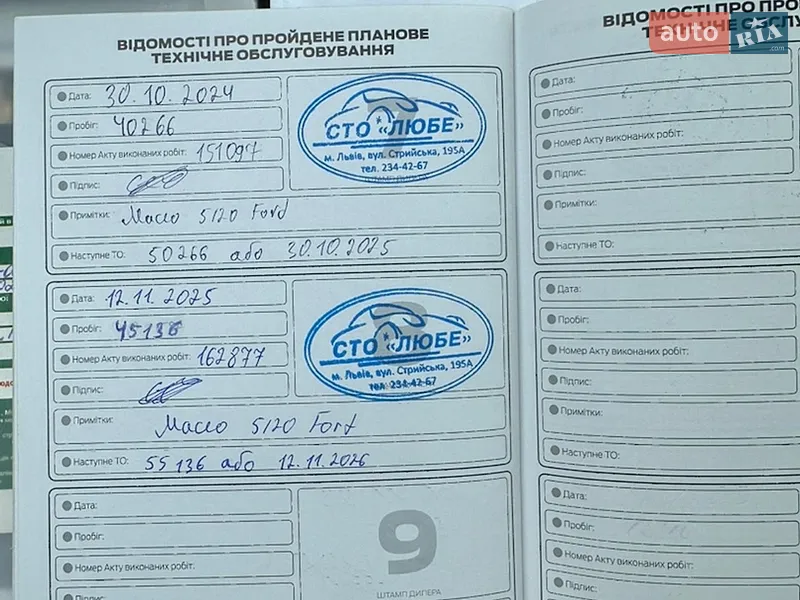 ВІДОМОСТІ ПРО ПРОЙДЕНЕ ПЛАНОВЕ
ТЕХНІЧНЕ ОБСЛУГОВУВАННЯ
Дата: 30.10.2024
Пробіг: 40266
Номер Акту виконаних робіт: 151097
Підпис:
СТО "ЛЮБЕ"
м. Львів, вул. Стрийська, 195А
тел. 234-42-67
ШТАМП ДИЛЕРА
Примітки: Масло 5/20 Ford
Наступне ТО: 50266 або 30.10.2025
Дата: 12.11.2025
Пробіг: 45136
Номер Акту виконаних робіт: 162877
Підпис:
СТО "ЛЮБЕ"
м. Львів, вул. Стрийська, 195А
тел. 234-42-67
Примітки: Масло 5/20 Ford
Наступне ТО: 55136 або 12.11.2026
Дата:
Пробіг:
Номер Акту виконаних робіт:
Підпис:
9
ШТАМП ДИЛЕРА
ВІДОМОСТІ ПРО
auto RIA .com
Дата:
Пробіг:
Номер Акту виконаних робіт:
Підпис:
Примітки:
Наступне ТО:
Дата:
Пробіг:
Номер Акту виконаних робіт:
Підпис:
Примітки:
Наступне ТО:
Дата:
Пробіг:
Номер Акту виконаних робіт:
Підпис: